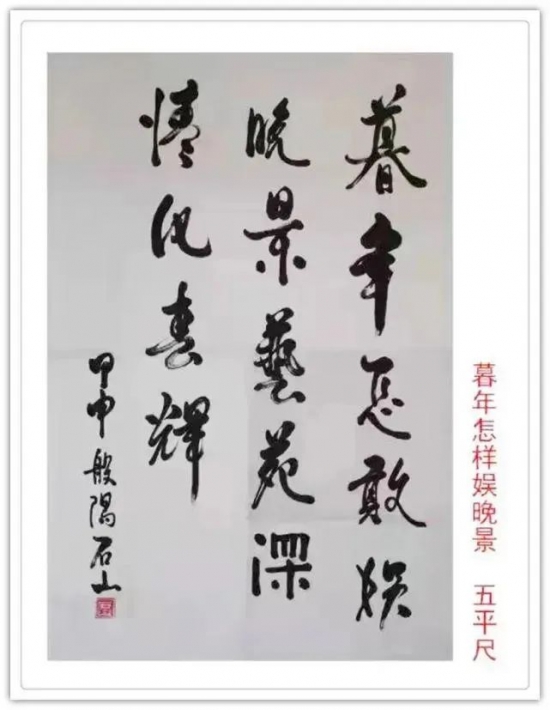 暮年怎敢娱
晚景藝苑深
情化春輝
甲申 石山
暮年怎样娱晚景 五平尺